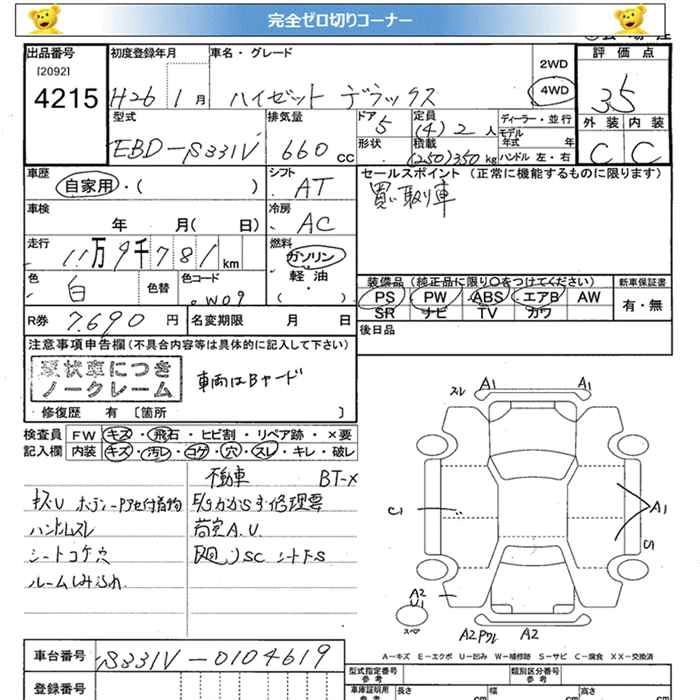 完全ゼロ切りコーナー
出品番号
[2092]
4215
初度登録年月
H26 1月
車名・グレード
ハイゼット デラックス
2WD
4WD
評価点
3.5
型式
EBD-S331V
排気量
660 CC
ドア
5
形状
定員
(4) 2 人
積載
(250) 350 kg
ディーラー・並行
モデル
年式 年
ハンドル 左・右
外装 内装
C C
車歴
自家用・( )
シフト
AT
セールスポイント (正常に機能するものに限ります)
買い取り車
車検
年 月( 日)
冷房
AC
走行
11万9千781km
燃料
ガソリン
・軽油
( )
色
白
色替
色コード
W09
装備品 (純正品に限り○をつけてください)
PS PW ABS エアB AW
SR ナビ TV カワ
新車保証書
有・無
R券 7.690円
名変期限 月 日
後日品
注意事項申告欄(不具合内容等は具体的に記入して下さい)
現状車につき
ノークレーム
車両はBヤード
修復歴 有 [箇所 ]
検査員 FW キズ・飛石・ヒビ割・リペア跡・×要
記入欄 内装 キズ・汚レ・コゲ・穴・スレ・キレ・破レ
不動車 BT-×
キズU
ハンドルスレ
シートコゲ穴
E/Gかからず修理要
荷室A.U.
スレ A1 A1
C1
A1
C1
A2
U1
スペア
A2 A2
A-キズ E-エクボ U-凹み W-補修跡 S-サビ C-腐食 XX-交換済
車台番号 S331V-0104619
登録番号
型式指定番号
参考
類別区分番号
参考
車庫証明用
参考
長さ cm
幅 cm
高さ cm